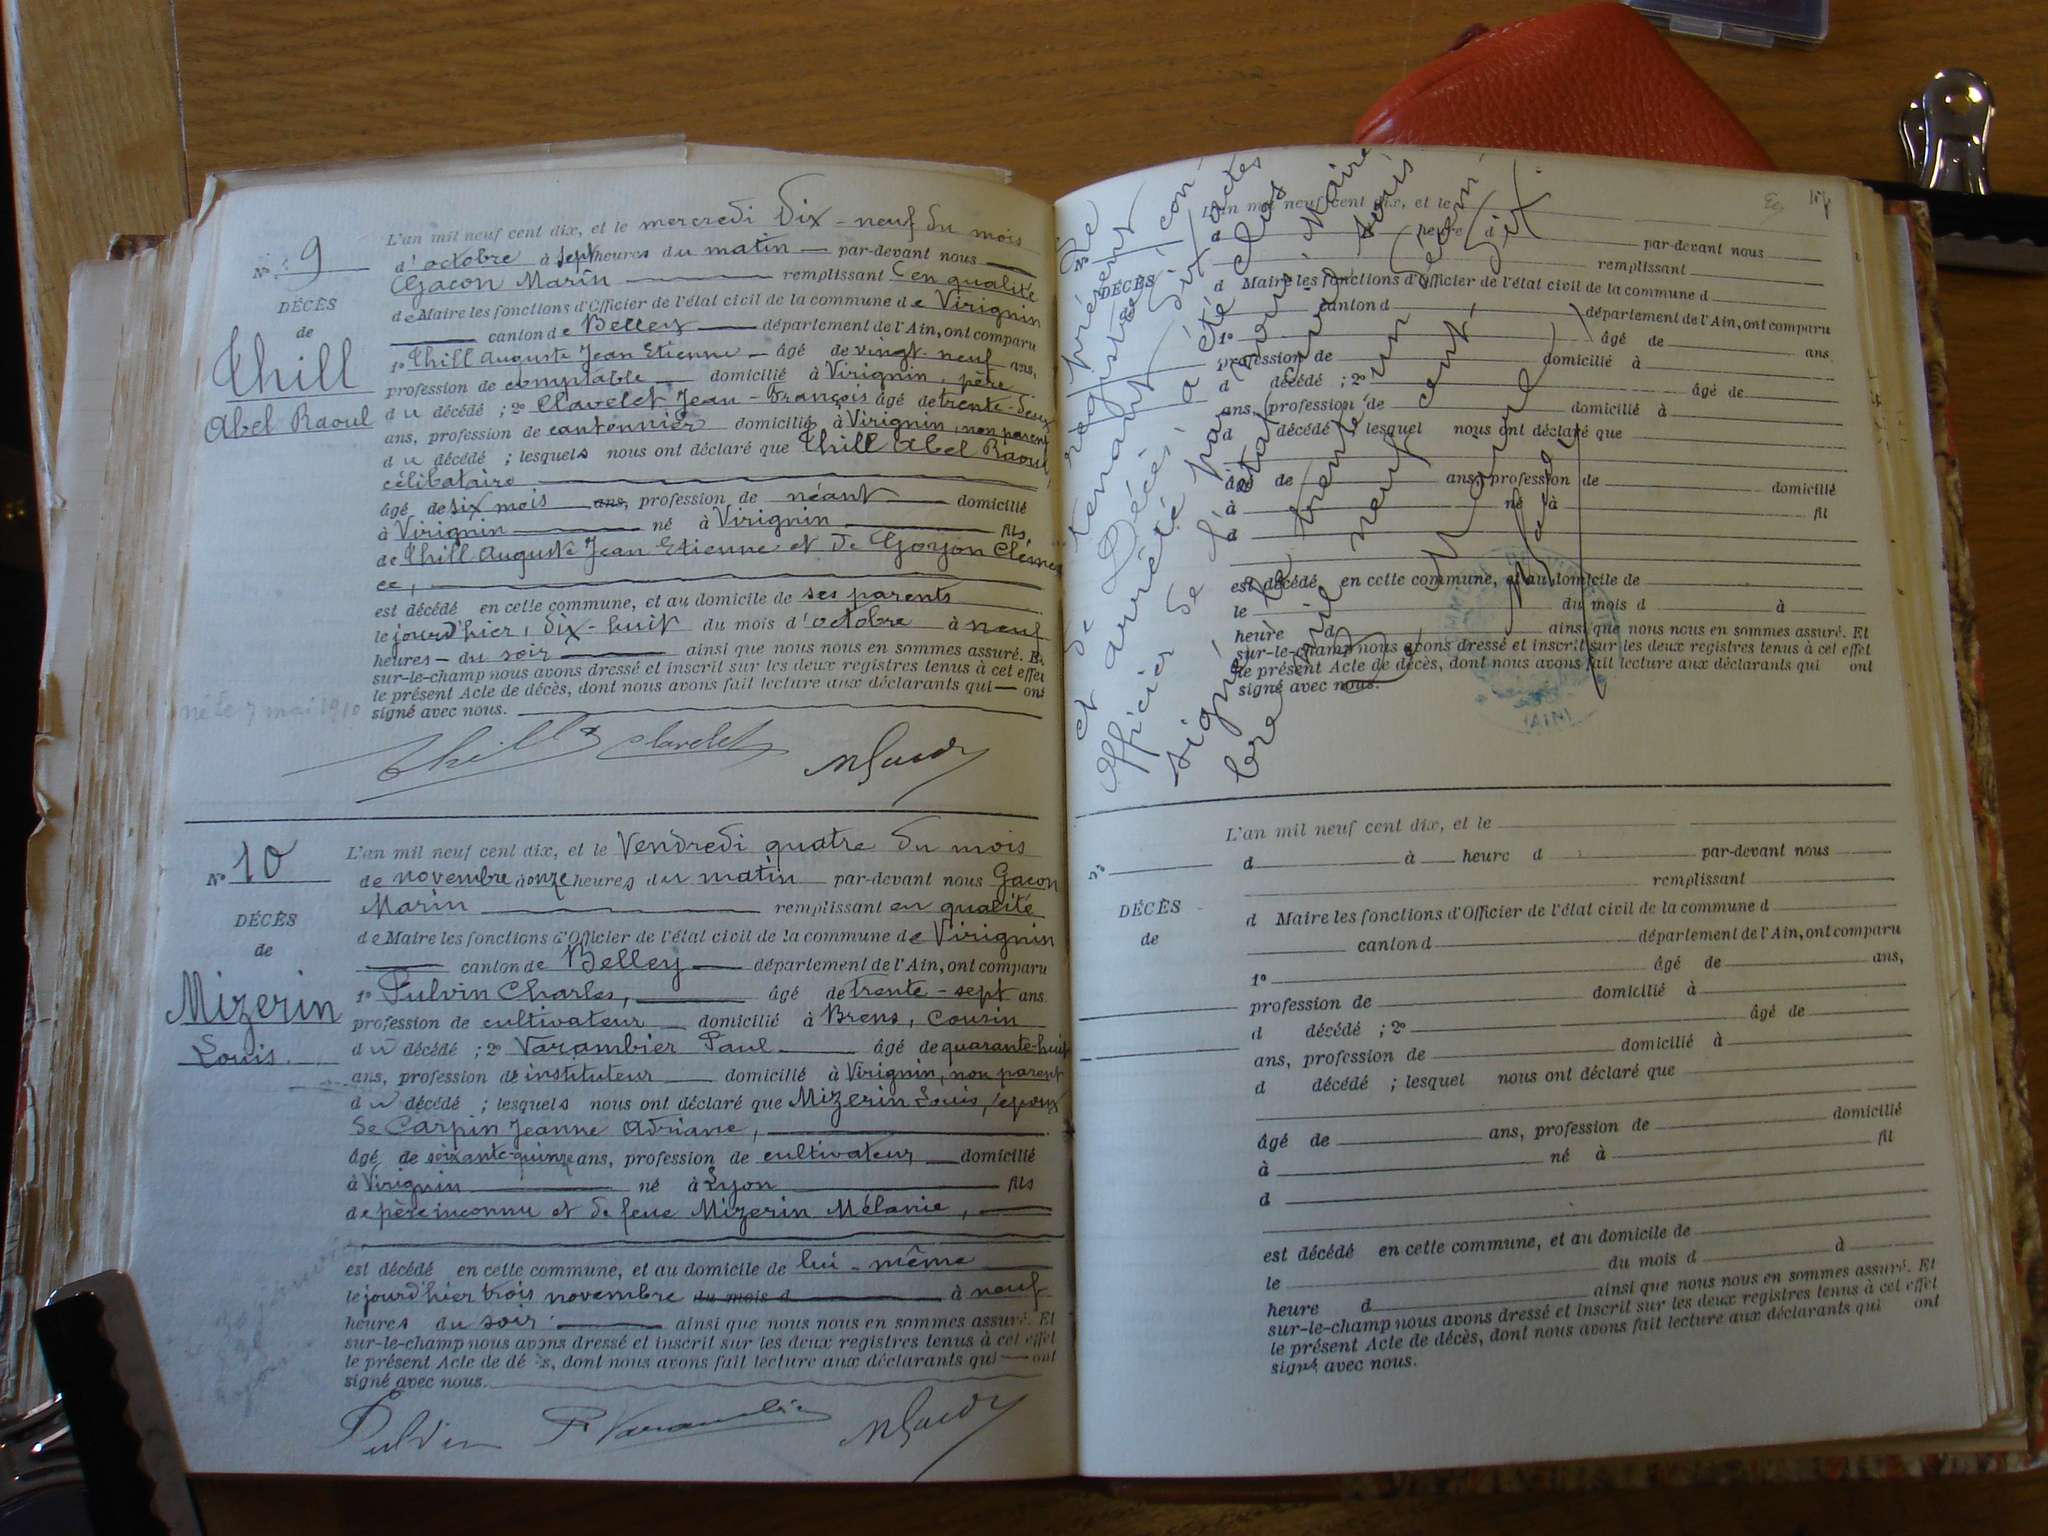 N° 9
DÉCÈS
de
Thill
Abel Raoul
né le 7 mai 1910
L'an mil neuf cent dix, et le mercredi dix-neuf du mois
d'octobre à sept heures du matin par-devant nous
Gacon Marin remplissant en qualité
de Maire les fonctions d'Officier de l'état civil de la commune de Virignin
canton de Belley département de l'Ain, ont comparu
1° Thill Auguste Jean Etienne âgé de vingt-neuf ans,
profession de comptable domicilié à Virignin, père
du décédé ; 2° Clavelet Jean-François âgé de trente-deux
ans, profession de cantonnier domicilié à Virignin, non parent
du décédé ; lesquels nous ont déclaré que Thill Abel Raoul,
célibataire
âgé de six mois ans, profession de néant domicilié
à Virignin né à Virignin fils
de Thill Auguste Jean Etienne et de Goyon Clémen
ce,
est décédé en cette commune, et au domicile de ses parents
le jourd'hier, dix-huit du mois d'octobre à neuf
heures du soir ainsi que nous nous en sommes assuré. Et
sur-le-champ nous avons dressé et inscrit sur les deux registres tenus à cet effet
le présent Acte de décès, dont nous avons fait lecture aux déclarants qui ont
signé avec nous.
Thill Clavelet MGacon
N° 10
DÉCÈS
de
Mizerin
Louis
L'an mil neuf cent dix, et le Vendredi quatre du mois
de novembre à onze heures du matin par-devant nous Gacon
Marin remplissant en qualité
de Maire les fonctions d'Officier de l'état civil de la commune de Virignin
canton de Belley département de l'Ain, ont comparu
1° Pulvin Charles, âgé de trente-sept ans
profession de cultivateur domicilié à Brens, cousin
du décédé ; 2° Varambier Paul âgé de quarante-huit
ans, profession de instituteur domicilié à Virignin, non parent
du décédé ; lesquels nous ont déclaré que Mizerin Louis, époux
de Carpin Jeanne Adriane,
âgé de soixante-quinze ans, profession de cultivateur domicilié
à Virignin né à Lyon fils
de père inconnu et de feue Mizerin Mélanie,
est décédé en cette commune, et au domicile de lui-même
le jourd'hier trois novembre du mois d à neuf
heures du soir ainsi que nous nous en sommes assuré. Et
sur-le-champ nous avons dressé et inscrit sur les deux registres tenus à cet effet
le présent Acte de décès, dont nous avons fait lecture aux déclarants qui ont
signé avec nous.
Pulvin P. Varambier MGacon
Le présent
registre con-
tenant dix actes
de Décès, a été clos
et arrêté par nous Maire
Officier de l'état civil sous
signé, le trente un décem
bre mil neuf cent dix.
Le Maire
MGacon
N°
DÉCÈS
L'an mil neuf cent dix, et le
à heure d par-devant nous
remplissant
d Maire les fonctions d'Officier de l'état civil de la commune d
canton d département de l'Ain, ont comparu
1° âgé de ans
profession de domicilié à
d décédé ; 2° âgé de
ans, profession de domicilié à
d décédé ; lesquel nous ont déclaré que
âgé de ans, profession de domicilié
à né à fil
d
est décédé en cette commune, et au domicile de
le du mois d à
heure d ainsi que nous nous en sommes assuré. Et
sur-le-champ nous avons dressé et inscrit sur les deux registres tenus à cet effet
le présent Acte de décès, dont nous avons fait lecture aux déclarants qui ont
signé avec nous.
N°
DÉCÈS
de
L'an mil neuf cent dix, et le
d à heure d par-devant nous
remplissant
d Maire les fonctions d'Officier de l'état civil de la commune d
canton d département de l'Ain, ont comparu
1° âgé de ans,
profession de domicilié à
d décédé ; 2° âgé de
ans, profession de domicilié à
d décédé ; lesquel nous ont déclaré que
âgé de ans, profession de domicilié
à né à fil
d
est décédé en cette commune, et au domicile de
le du mois d à
heure d ainsi que nous nous en sommes assuré. Et
sur-le-champ nous avons dressé et inscrit sur les deux registres tenus à cet effet
le présent Acte de décès, dont nous avons fait lecture aux déclarants qui ont
signé avec nous.